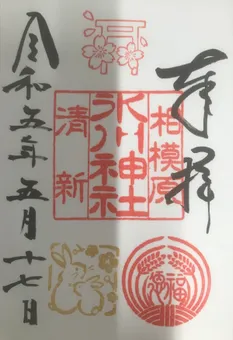 奉拝
相模原
氷川神社
清新
福
令和五年五月十七日